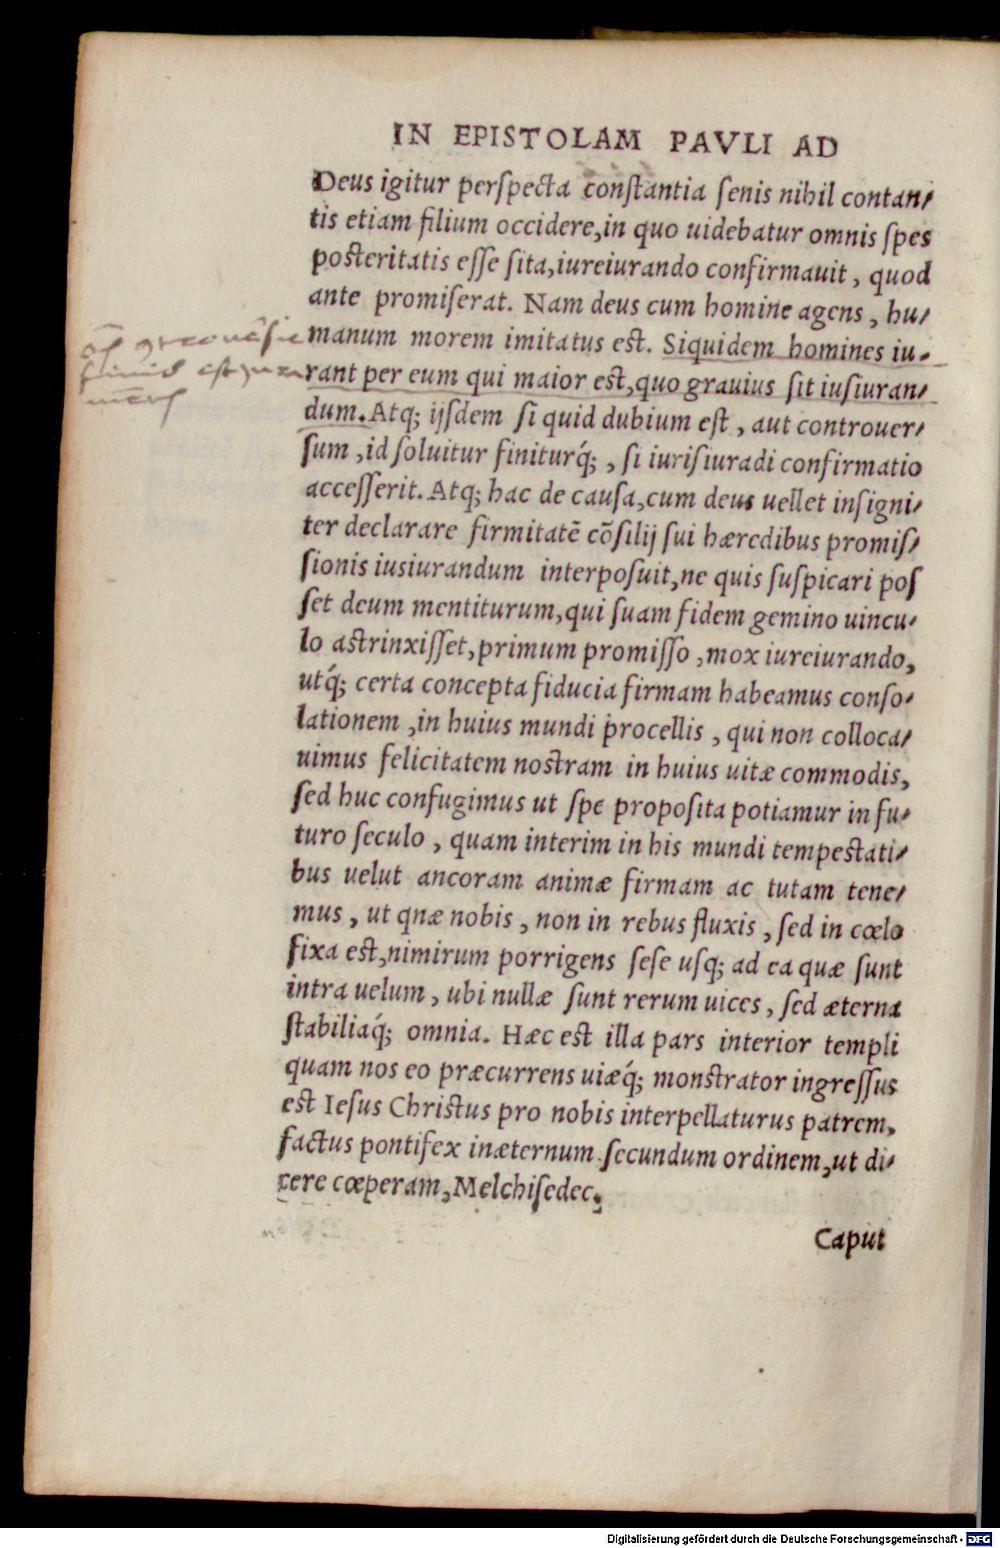 IN EPISTOLAM PAVLI AD
Deus igitur perspecta constantia senis nihil contan/
tis etiam filium occidere, in quo uidebatur omnis spes
posteritatis esse sita, iureiurando confirmauit, quod
ante promiserat. Nam deus cum homine agens, hu/
manum morem imitatus est. Siquidem homines iu/
rant per eum qui maior est, quo grauius sit iusiuran/
dum. Atq; ijsdem si quid dubium est, aut controuer/
sum, id soluitur finiturq́;, si iurisiuradi confirmatio
accesserit. Atq; hac de causa, cum deus uellet insigni/
ter declarare firmitatē cōsilij sui hæredibus promis/
sionis iusiurandum interposuit, ne quis suspicari pos
set deum mentiturum, qui suam fidem gemino uincu/
lo astrinxisset, primum promisso, mox iureiurando,
utq́; certa concepta fiducia firmam habeamus conso/
lationem, in huius mundi procellis, qui non colloca/
uimus felicitatem nostram in huius uitæ commodis,
sed huc confugimus ut spe proposita potiamur in fu/
turo seculo, quam interim in his mundi tempestati/
bus uelut ancoram animæ firmam ac tutam tene/
mus, ut qnæ nobis, non in rebus fluxis, sed in cœlo
fixa est, nimirum porrigens sese usq; ad ea quæ sunt
intra uelum, ubi nullæ sunt rerum uices, sed æterna
stabiliaq́; omnia. Hæc est illa pars interior templi
quam nos eo præcurrens uiæq́; monstrator ingressus
est Iesus Christus pro nobis interpellaturus patrem,
factus pontifex inæternum secundum ordinem, ut di/
cere cœperam, Melchisedec.
Caput
Digitalisierung gefördert durch die Deutsche Forschungsgemeinschaft - DFG